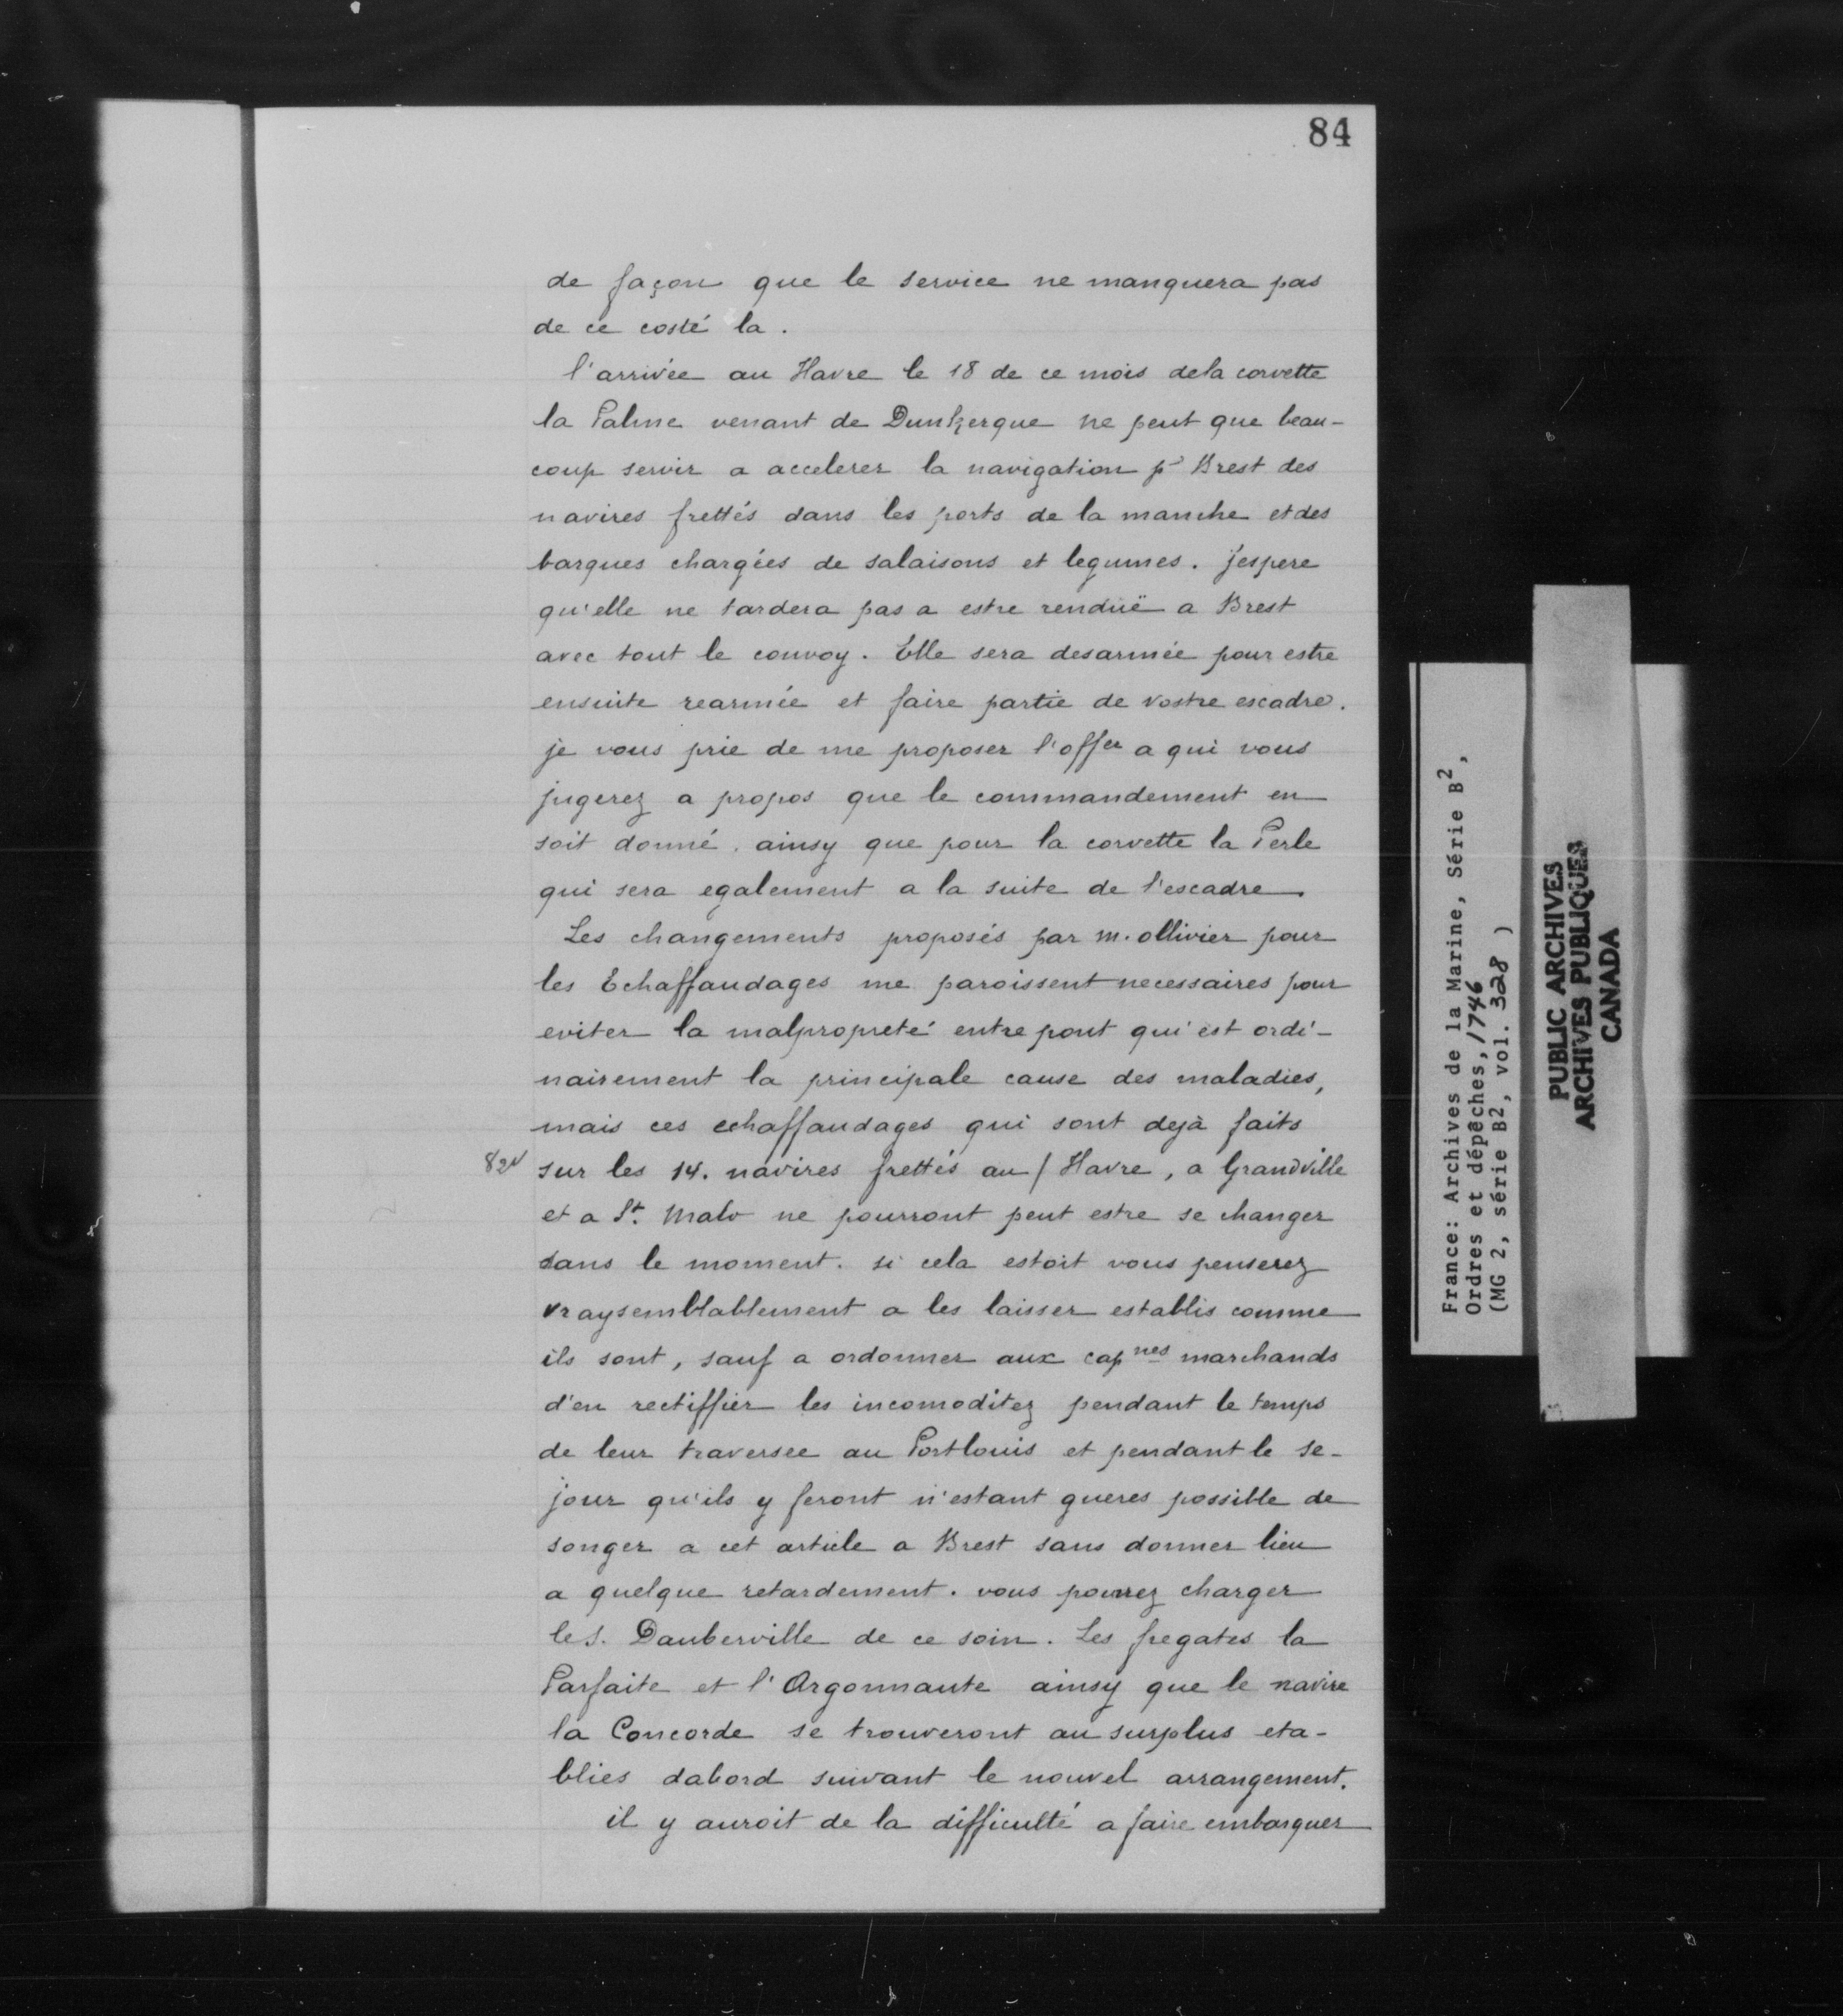 84
de façon que le service ne manquera pas
de ce costé la.
l'arrivée au Havre le 18 de ce mois dela corvette
la Palme venant de Dunkerque ne peut que beau-
coup servir a accelerer la navigation pr Brest des
navires frettés dans les ports de la manche et des
barques chargées de salaisons et legumes. j'espere
qu'elle ne tardera pas a estre renduë a Brest
avec tout le convoy. Elle sera desarmée pour estre
ensuite rearmée et faire partie de vostre escadre.
je vous prie de me proposer l'offer a qui vous
jugerez a propos que le commandement en
soit donné. ainsy que pour la corvette la Perle
qui sera egalement a la suite de l'escadre.
Les changements proposés par m. ollivier pour
les Echaffaudages me paroissent necessaires pour
eviter la malpropreté entre pont qui est ordi-
nairement la principale cause des maladies,
mais ces echaffaudages qui sont dejà faits
82v sur les 14. navires frettés au / Havre, a Grandville
et a St. Malo ne pourront peut estre se changer
dans le moment. si cela estoit vous penserez
vraysemblablement a les laisser establis comme
ils sont, sauf a ordonner aux capnes marchands
d'en rectiffier les incomoditez pendant le temps
de leur traversee au Portlouis et pendant le se-
jour qu'ils y feront n'estant gueres possible de
songer a cet article a Brest sans donner lieu
a quelque retardement. vous pourrez charger
le S. Dauberville de ce soin. Les fregates la
Parfaite et l'Argonnaute ainsy que le navire
la Concorde se trouveront au surplus eta-
blies dabord suivant le nouvel arrangement.
il y auroit de la difficulté a faire embarquer
France: Archives de la Marine, Série B2,
Ordres et dépêches, 1746
(MG 2, série B2, vol. 328 )
PUBLIC ARCHIVES
ARCHIVES PUBLIQUES
CANADA